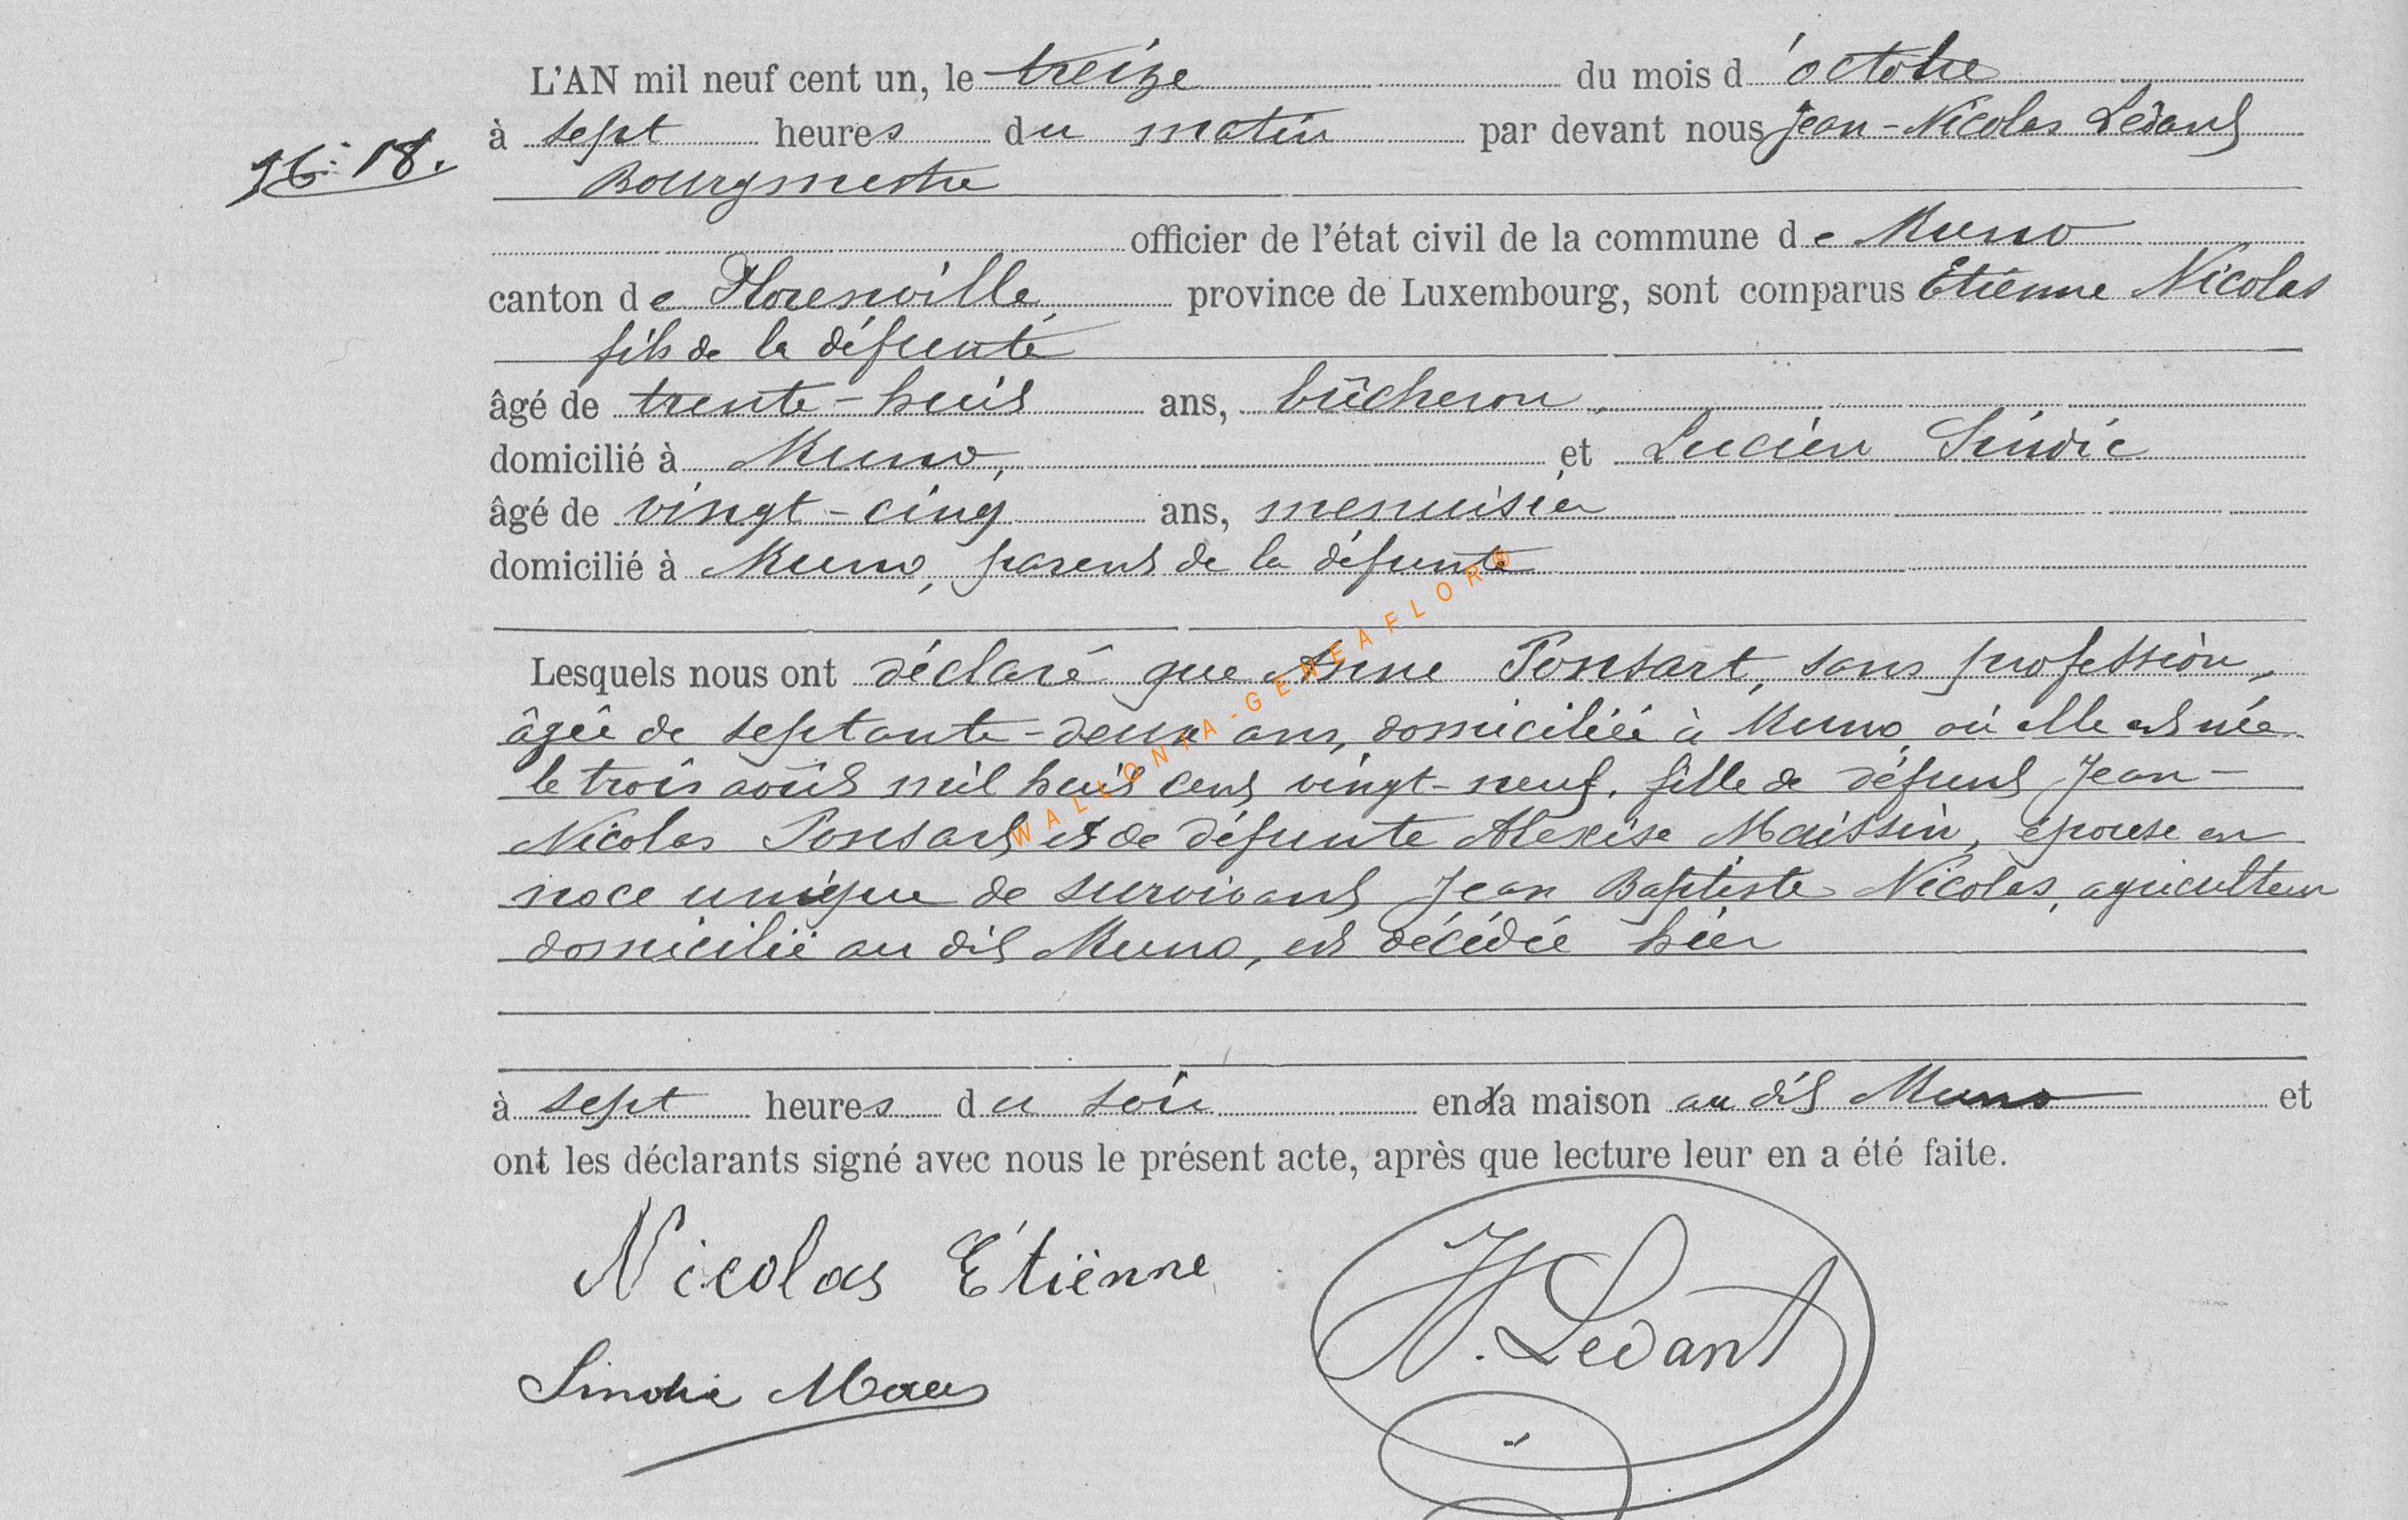 L'AN mil neuf cent un, le treize du mois d'octobre
à sept heures du matin par devant nous Jean-Nicolas Ledant
N° 18.
Bourgmestre
officier de l'état civil de la commune de Muno
canton de Florenville, province de Luxembourg, sont comparus Etienne Nicolas
fils de la défunte
âgé de trente-huit ans, bûcheron,
domicilié à Muno, et Lucien Sindic
âgé de vingt-cinq ans, menuisier
domicilié à Muno, parent de la défunte
Lesquels nous ont déclaré que Anne Ponsart, sans profession,
âgée de septante-deux ans, domiciliée à Muno où elle est née
le trois août mil huit cent vingt-neuf, fille de défunt Jean-
Nicolas Ponsart et de défunte Alexise Maissin, épouse en
noce unique de survivant Jean Baptiste Nicolas, agriculteur
domicilié au dit Muno, est décédée hier
à sept heures du soir en la maison au dit Muno et
ont les déclarants signé avec nous le présent acte, après que lecture leur en a été faite.
Nicolas Étienne
Ledant
Sindic
WALLONIA-GENEAFLOR®